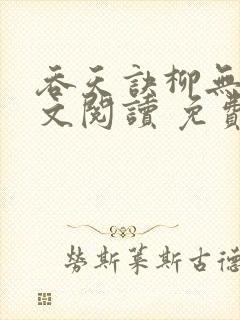 吞天訣柳無
文閱讀 免費
勞斯萊斯古德